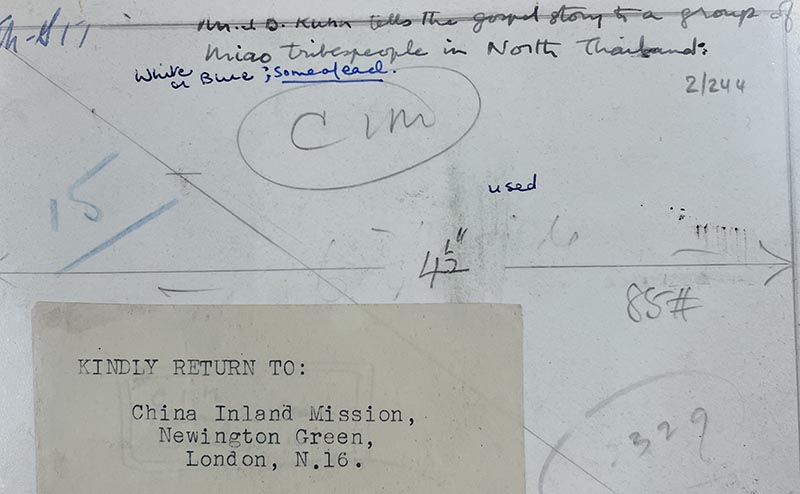 Mr. J. B. Kuhn tells the gospel story to a group of
Miao tribespeople in North Thailand.
White or Blue;
2/244
CIM
15
used
4½"
85#
329
KINDLY RETURN TO:
China Inland Mission,
Newington Green,
London, N.16.